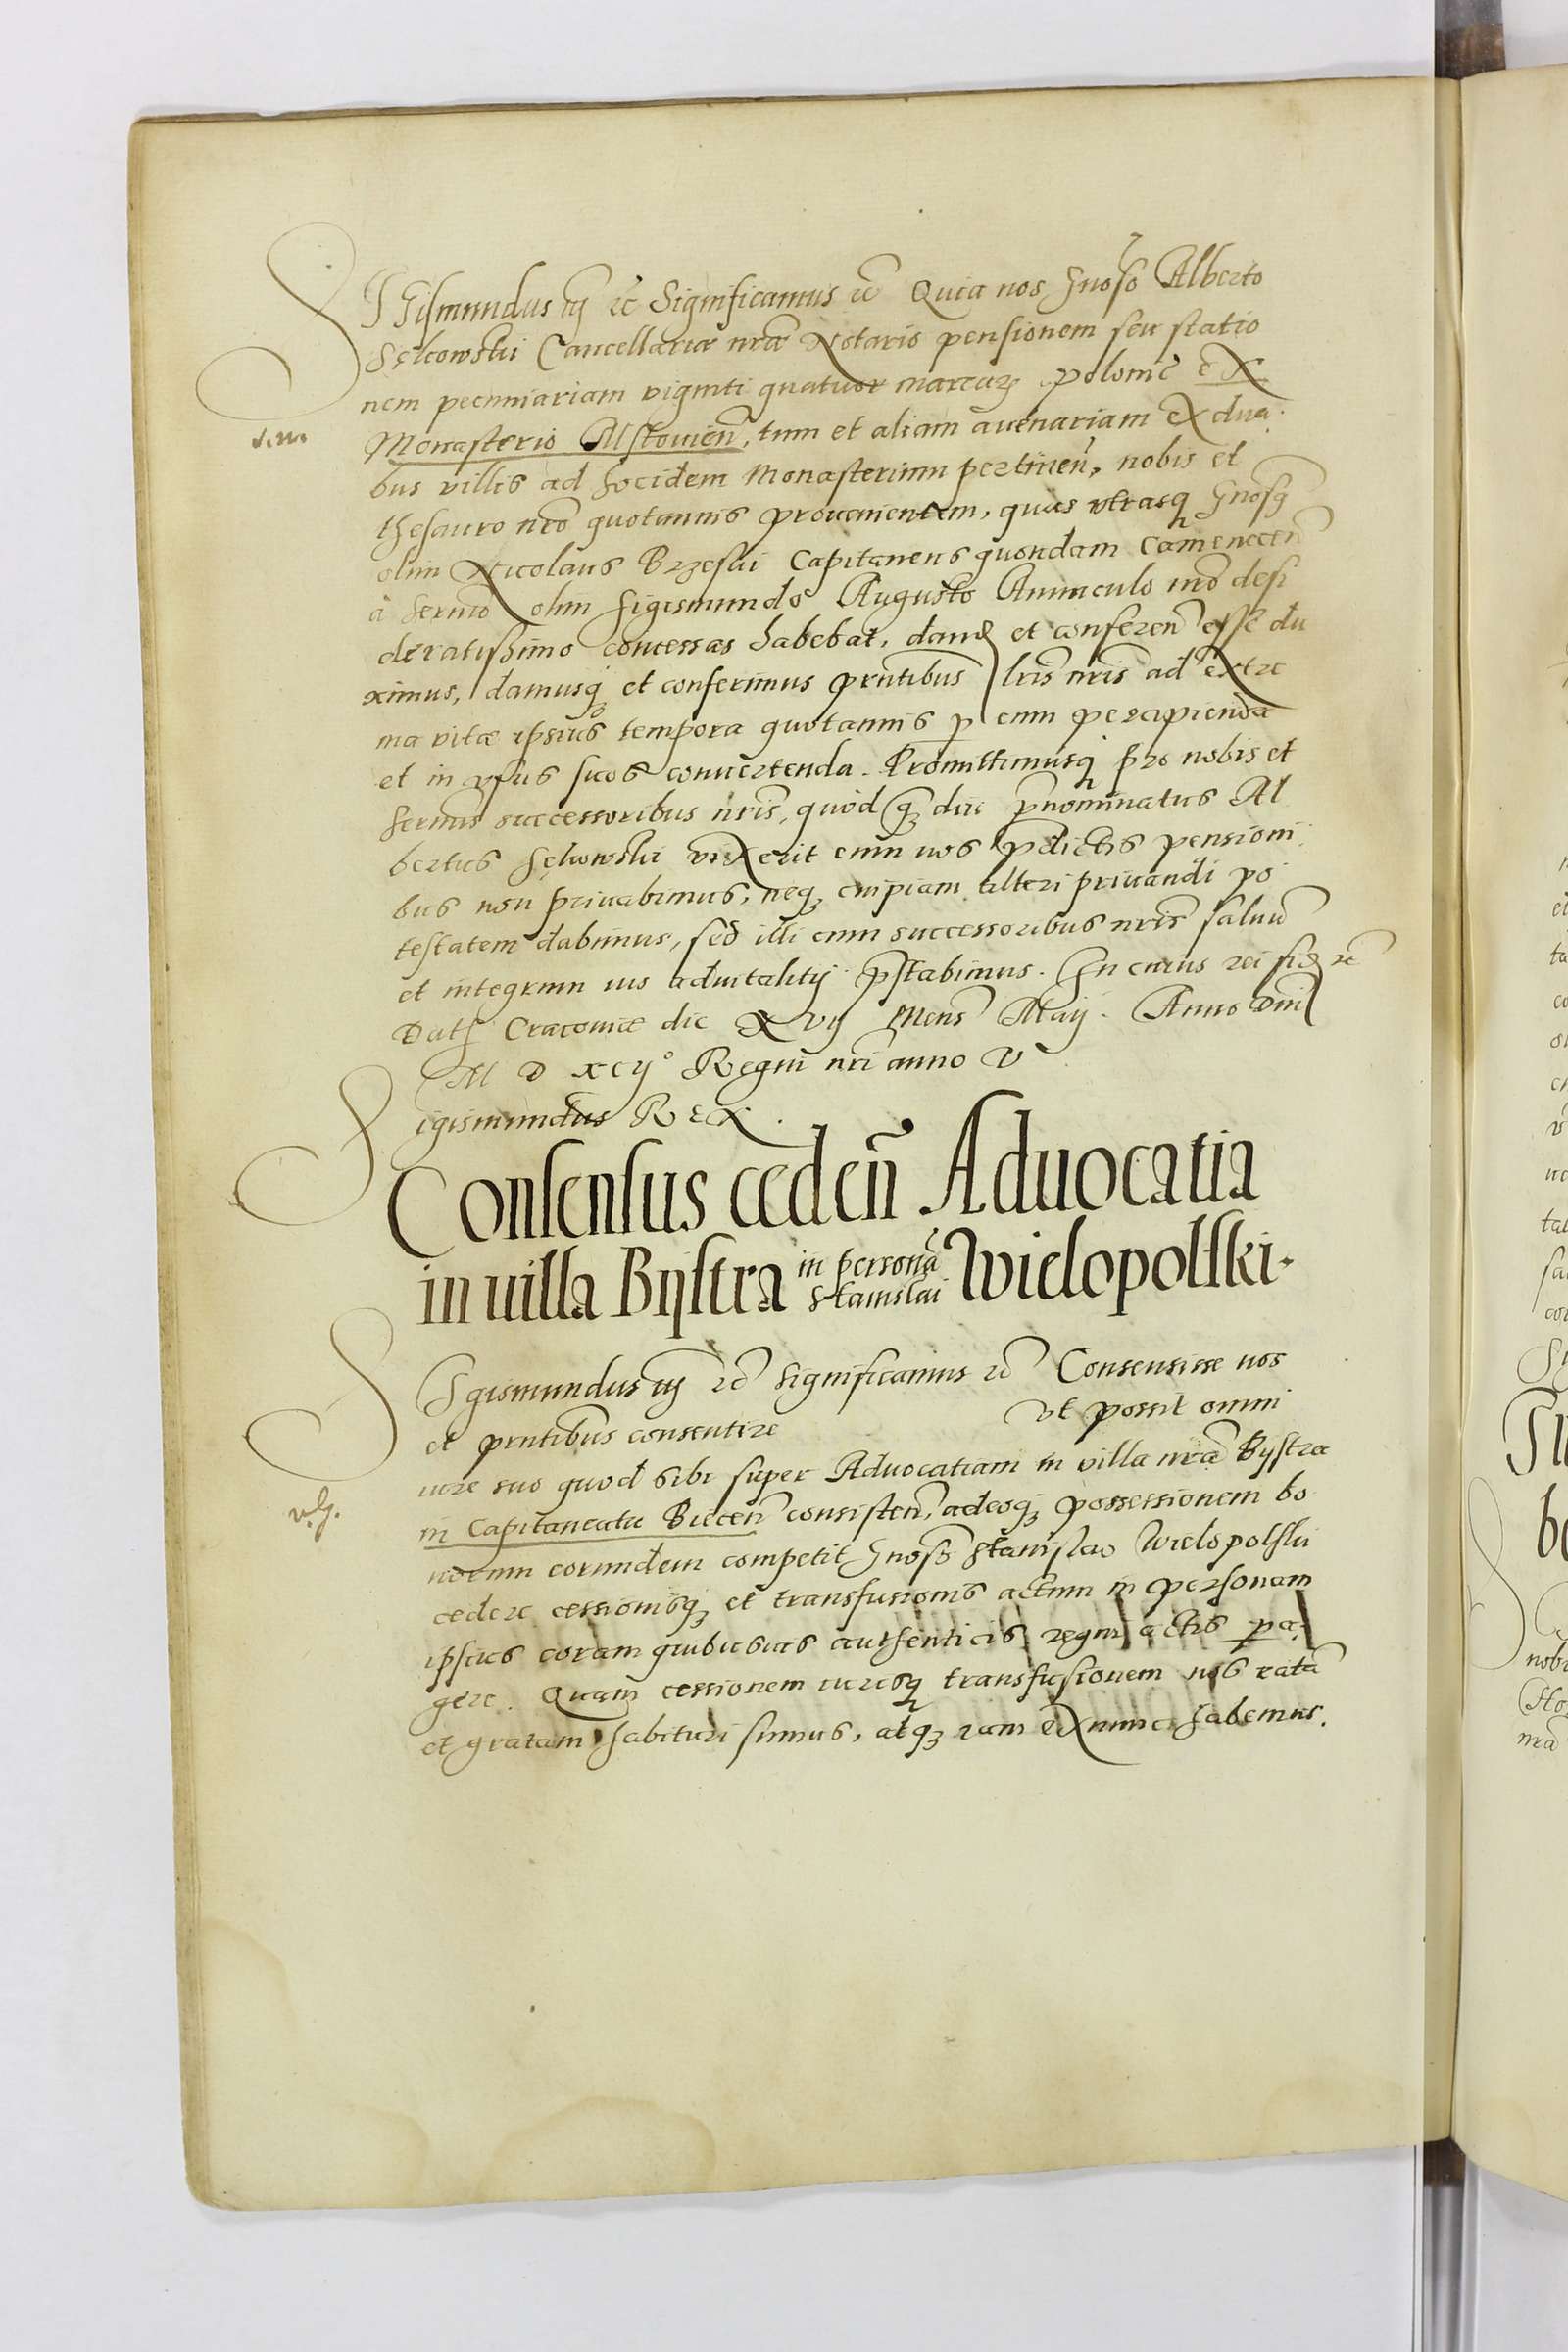 SIGismundus iij etc Significamus etc Quia nos Gnoso Alberto
Sęlcowski Cancellariæ nrae Notario pensionem seu statio
nem pecuniariam viginti quatuor marcarz polonic ex
v. m.
Monasterio Mstouien, tum et aliam auenariam ex dua
bus villis ad hocidem Monasterium pertinen, nobis et
thesauro nro quotannis prouenientem, quas vtrasq Gnosq
olim Nicolaus Brzeski Capitaneus quondam Camenecen
à sermo olim Sigismundo Augusto Auunculo nro desi
deratissimo concessas habebat, dand et conferen esse du
ximus, damusq et conferimus pntibus lris nris ad extre
ma vitæ ipsius tempora quotannis p eum percipienda
et in vsus suos conuertenda. Promittimusq pro nobis et
sermis successoribus nris, quòd qz diu pnominatus Al
bertus Sęlcowski vixerit eum nos pdictis pensioni
bus non priuabimus, neqz cuipiam alteri priuandi po
testatem dabimus, sed illi cum successoribus nris saluu
et integrum ius aduitalitij pstabimus. In cuius rei fid etc
Dat Cracouiæ die XVIJ Mens Maij. Anno Dni
M D XCIJ° Regni nri anno V
Sigismundus Rex.
Consensus ceden Aduocatia
in uilla Bijstra in persona Stanislai Wielopolski.
SIgismundus iij etc Significamus etc Consensisse nos
et pntibus consentire vt possit omni
iure suo quod sibi super Aduocatiam in villa nra Bijstra
v. g.
in Capitaneatu Biecen consisten, adeoqz possessionem bo
norum eorundem competit Gnoso Stanislao Wielopolski
cedere cessionisqz et transfusionis actum in personam
ipsius coram quibusuis authenticis regni actis pa
gere. Quam cessionem iurisq transfusionem nos rata
et gratam habituri sumus, atqz iam ex nunc habemus.